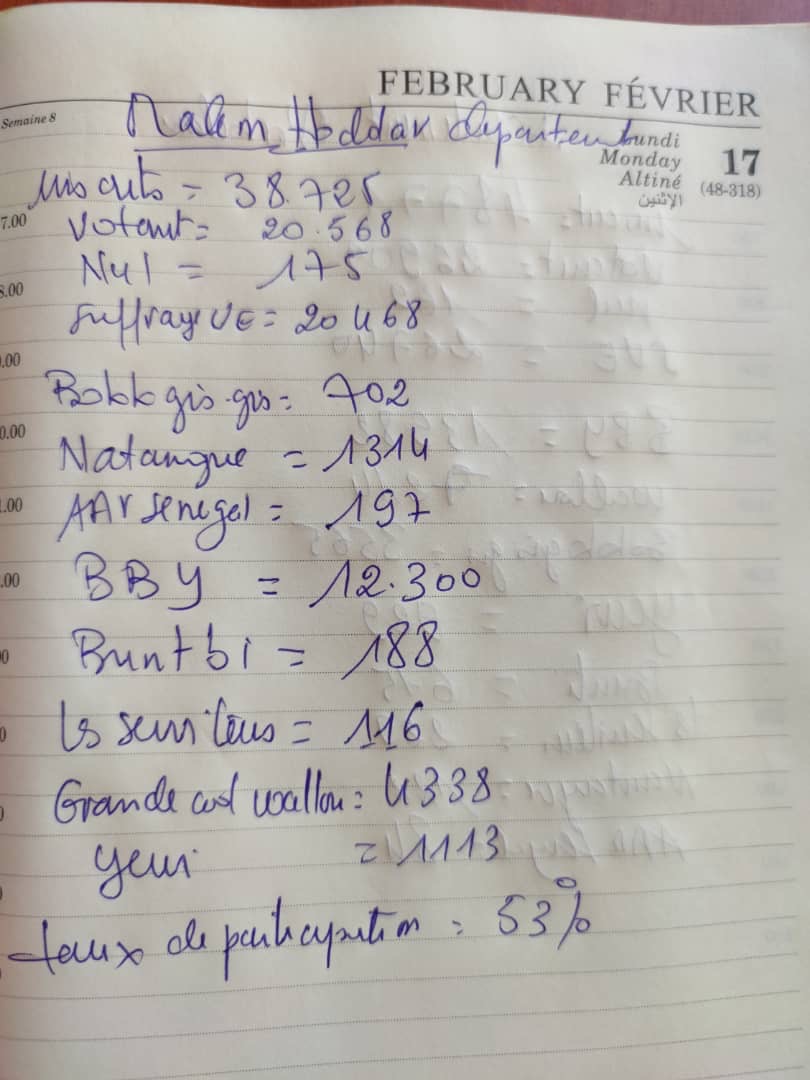 FEBRUARY FÉVRIER
Semaine 8
Malem Hoddar departement
Lundi
Monday 17
Altiné (48-318)
الإثنين
Inscrits = 38.725
7.00
Votant = 20.568
Nul = 175
8.00
Suffrage VE = 20468
.00
Bokk gis-gis = 702
0.00
Natangue = 1314
1.00
AAR Senegal = 197
.00
BBY = 12.300
0
Bunt bi = 188
0
Ls serviteurs = 116
0
Grande coal wallou = 4338
Yewi = 1113
taux de participation = 53%